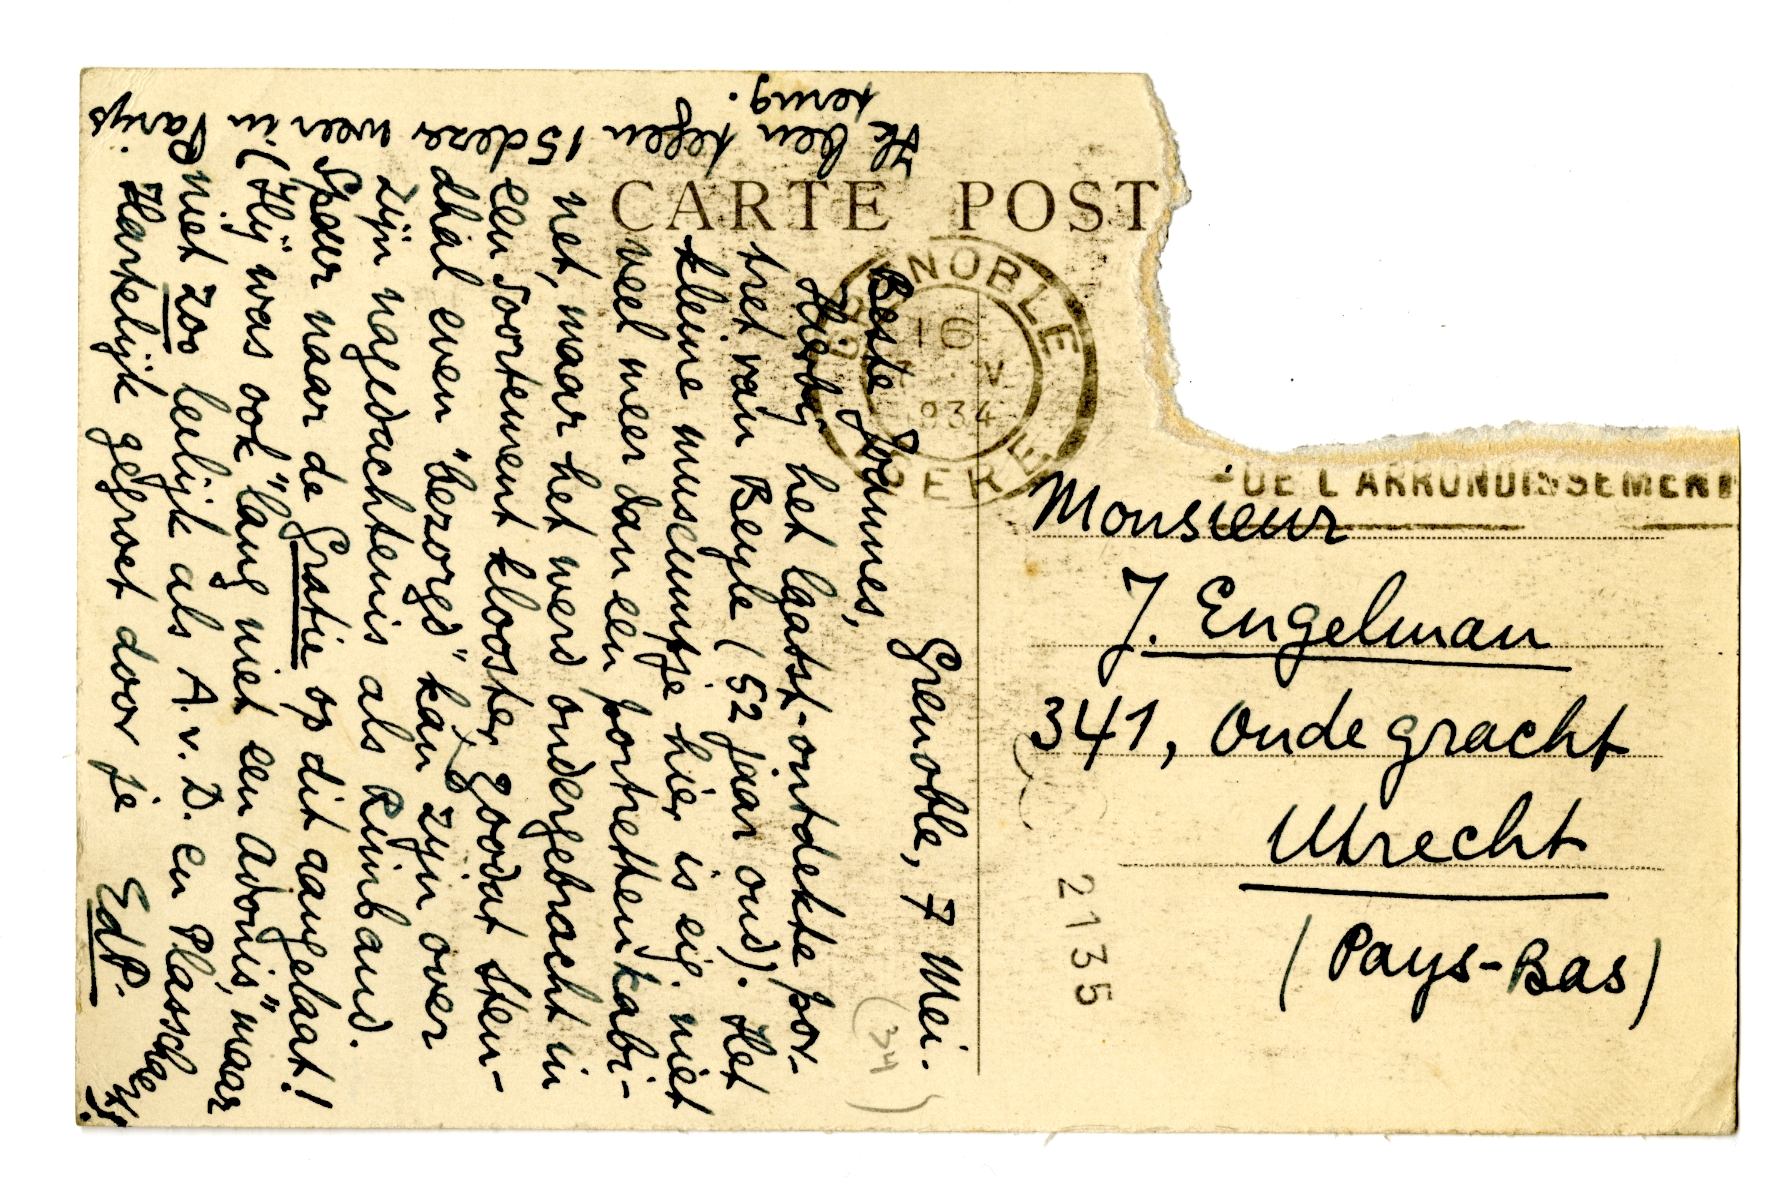 CARTE POST
GRENOBLE
16
7 · V
1934
ISERE
DE L'ARRONDISSEMENT
Grenoble, 7 Mei.
Beste Joannes,
Hierbij het laatst-ontdekte por-
tret van Beyle (52 jaar oud). Het
kleine museumtje hier is eig. niet
veel meer dan een portrettenkabi-
net, maar het werd ondergebracht in
een soortement klooster, zoodat Sten-
dhal even "bezorgd" kan zijn over
zijn nagedachtenis als Rimbaud.
Speur naar de Gratie op dit gangelaat!
(Hij was ook "lang niet een Adonis", maar
niet zoo leelijk als A. v. D. en Plasschaert).
Hartelijk gegroet door je EdP.
Ik ben tegen 15 dezer weer in Parijs
terug.
Monsieur
J. Engelman
341, Oude gracht
Utrecht
(Pays-Bas)
2135
(34)